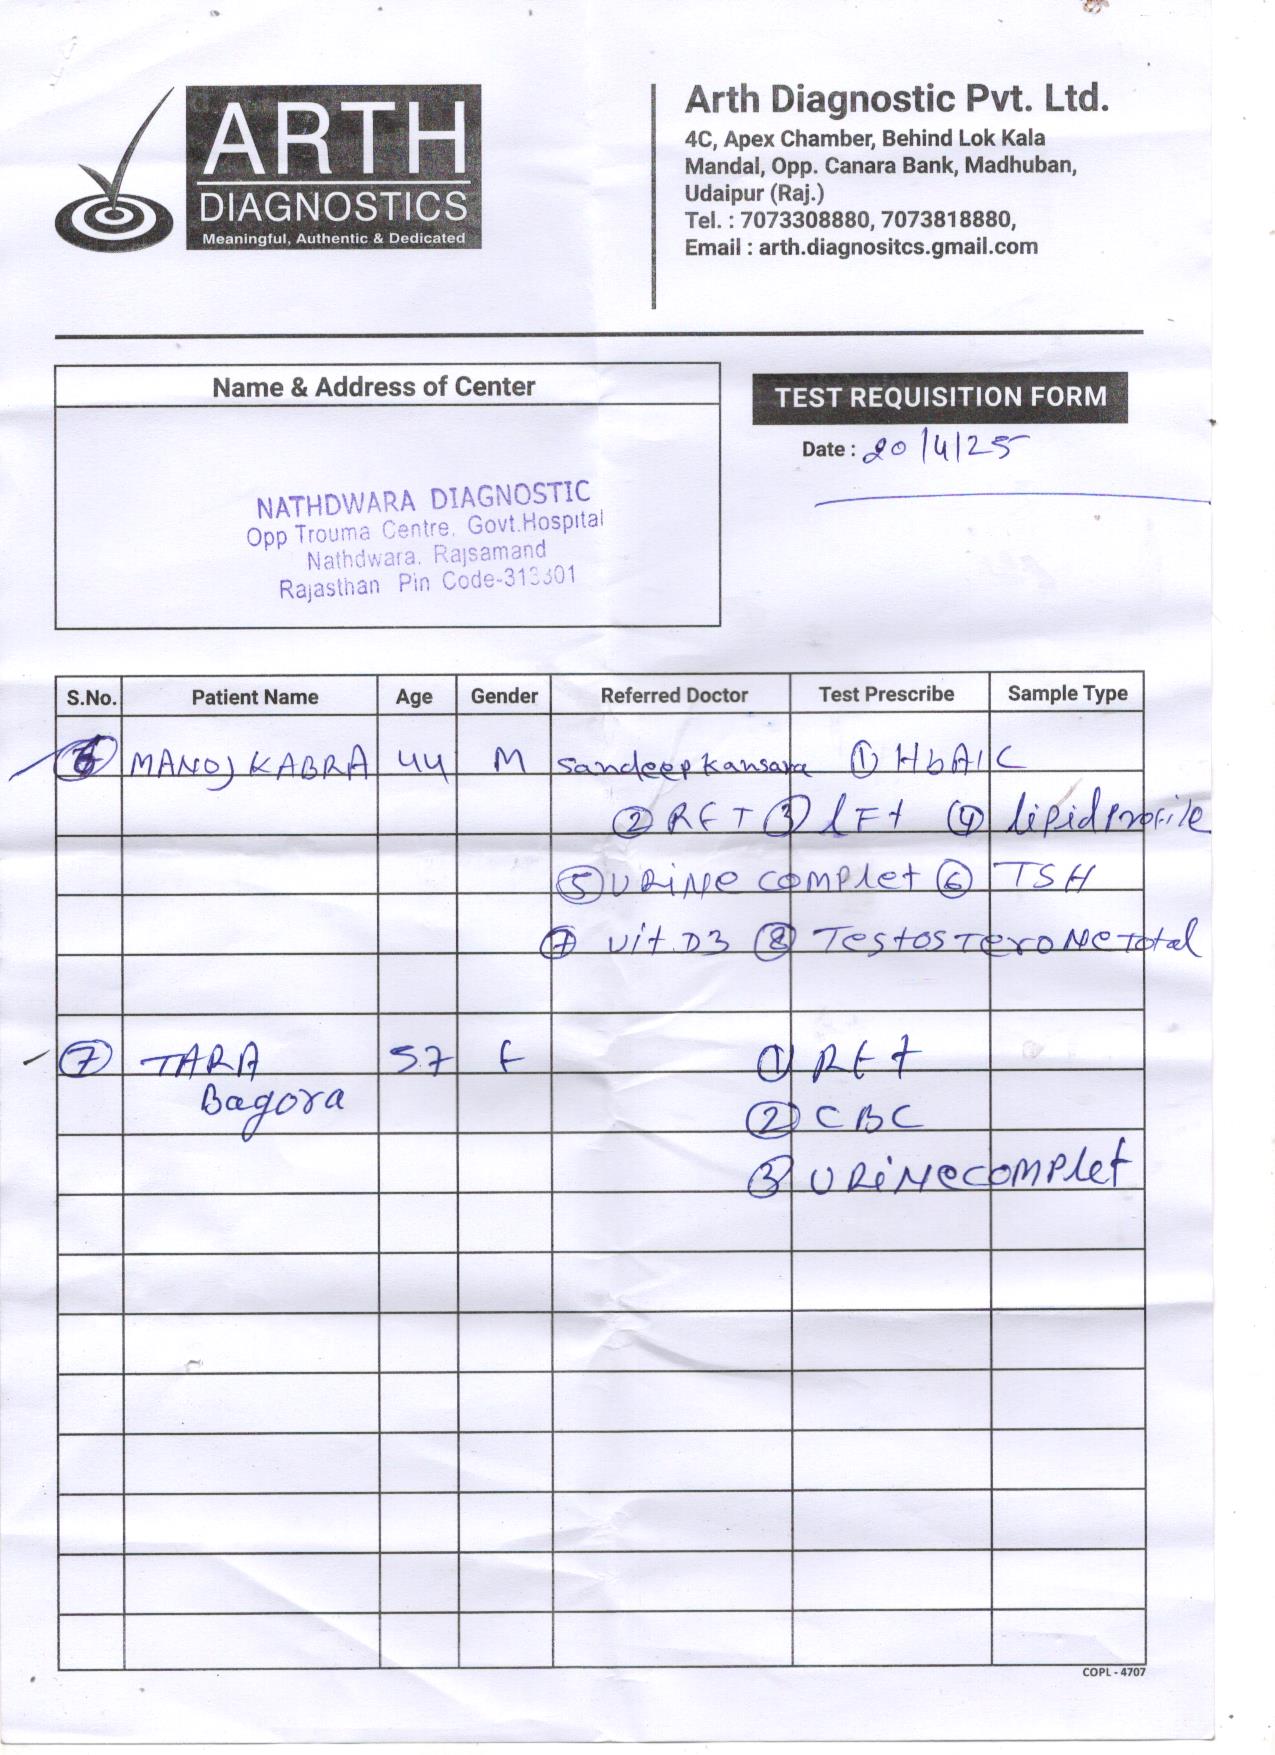 ARTH
DIAGNOSTICS
Meaningful, Authentic & Dedicated
Arth Diagnostic Pvt. Ltd.
4C, Apex Chamber, Behind Lok Kala
Mandal, Opp. Canara Bank, Madhuban,
Udaipur (Raj.)
Tel. : 7073308880, 7073818880,
Email : arth.diagnositcs.gmail.com
Name & Address of Center
NATHDWARA DIAGNOSTIC
Opp Trouma Centre, Govt.Hospital
Nathdwara, Rajsamand
Rajasthan Pin Code-313301
TEST REQUISITION FORM
Date : 20/4/25
S.No. Patient Name Age Gender Referred Doctor Test Prescribe Sample Type
6 MANOJ KABRA 44 M Sandeep Kansara ① HbA1C
② RFT ③ LFt ④ lipid profile
⑤ URiNe complet ⑥ TSH
⑦ Vit D3 ⑧ TestosTeroNe Total
⑦ TARA 57 F ① RFt
Bagora ② CBC
③ URiNe complet
COPL - 4707